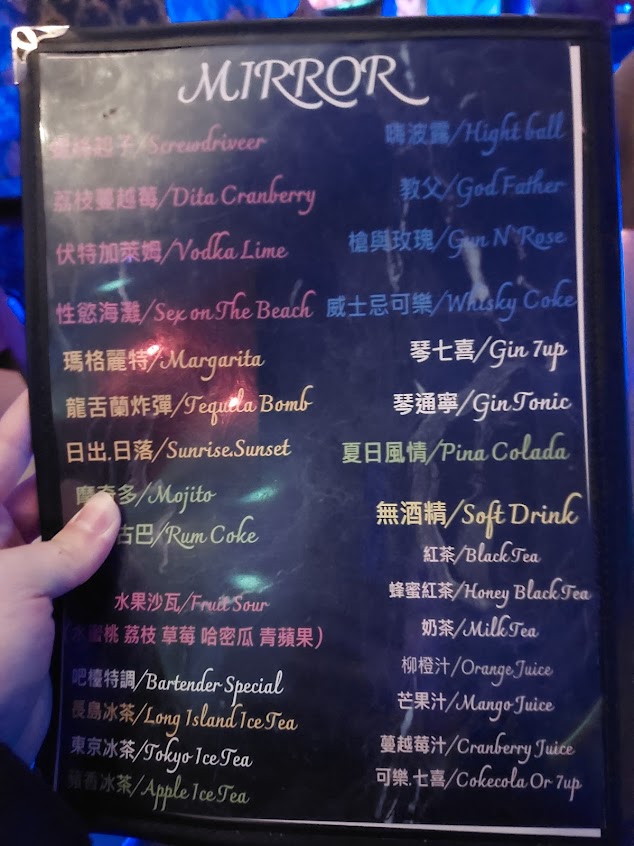 MIRROR
螺絲起子/Screwdriveer
荔枝蔓越莓/Dita Cranberry
伏特加萊姆/Vodka Lime
性慾海灘/Sex on The Beach
瑪格麗特/Margarita
龍舌蘭炸彈/Tequila Bomb
日出.日落/Sunrise.Sunset
摩奇多/Mojito
古巴/Rum Coke
水果沙瓦/Fruit Sour
(水蜜桃 荔枝 草莓 哈密瓜 青蘋果)
吧檯特調/Bartender Special
長島冰茶/Long Island Ice Tea
東京冰茶/Tokyo Ice Tea
蘋香冰茶/Apple Ice Tea
嗨波露/Hight ball
教父/God Father
槍與玫瑰/Gun N'Rose
威士忌可樂/Whisky Coke
琴七喜/Gin 7up
琴通寧/Gin Tonic
夏日風情/Pina Colada
無酒精/Soft Drink
紅茶/Black Tea
蜂蜜紅茶/Honey Black Tea
奶茶/Milk Tea
柳橙汁/Orange Juice
芒果汁/Mango Juice
蔓越莓汁/Cranberry Juice
可樂.七喜/Cokecola Or 7up